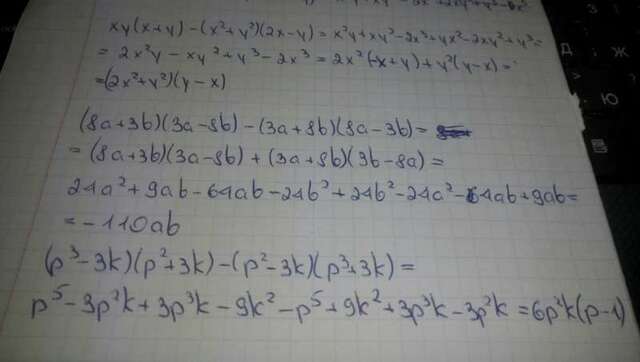 xy(x+y) - (x²+y²)(2x-y) = x²y + xy² - 2x³ + yx² - 2xy² + y³ =
= 2x²y - xy² + y³ - 2x³ = 2x²(-x+y) + y²(y-x) =
= (2x²+y²)(y-x)
(8a+3b)(3a-8b) - (3a+8b)(8a-3b) =
= (8a+3b)(3a-8b) + (3a+8b)(3b-8a) =
24a² + 9ab - 64ab - 24b² + 24b² - 24a² - 64ab + 9ab =
= -110ab
(p³-3k)(p²+3k) - (p²-3k)(p³+3k) =
p⁵ - 3p²k + 3p³k - 9k² - p⁵ + 9k² + 3p³k - 3p²k = 6p²k(p-1)
Д
Ж
Ю